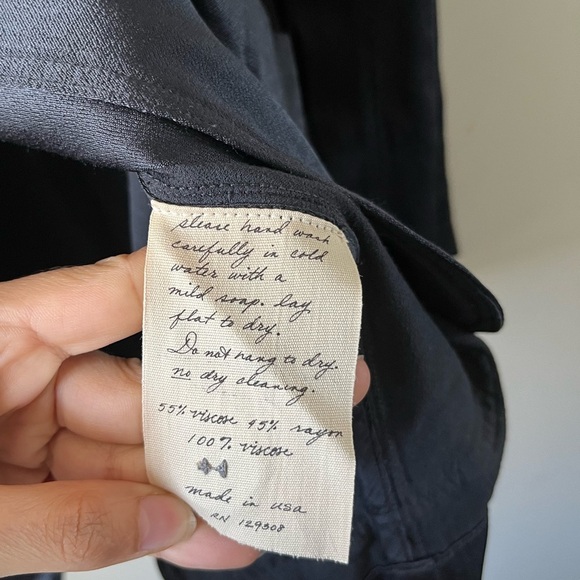 please hand wash
carefully in cold
water with a
mild soap. lay
flat to dry.
Do not hang to dry.
no dry cleaning.
55% viscose 45% rayon
100% viscose
made in usa
RN 129308